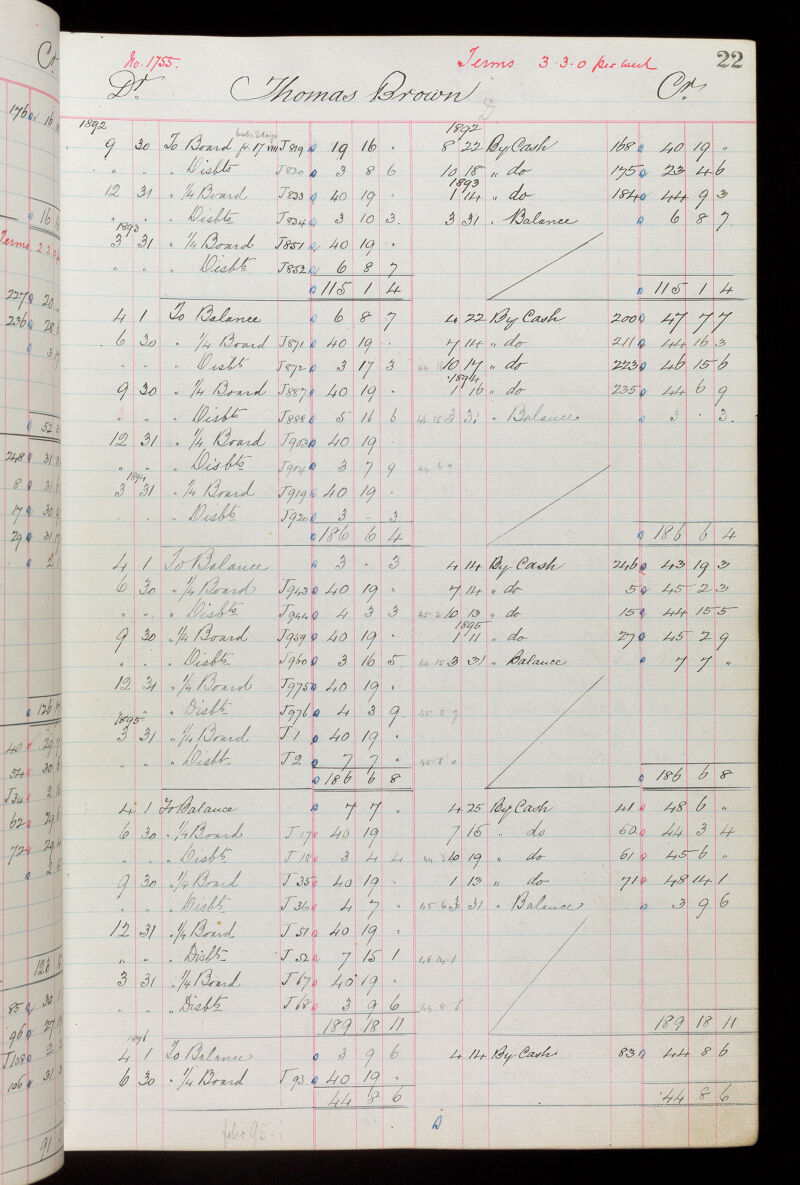 No. 1755. Terms 3.3.0 per week 22
Dr. Thomas Brown Cr.
1892 1892
9 30 To Board J819 19 16 " 8 22 By Cash 168 40 19 "
" " " Disbts J820 3 8 6 10 18 " do 175 23 4 6
1893
12 31 " 1/4 Board J833 40 19 " 1 14 " do 184 44 9 3
" " " Disbts J834 3 10 3. 3 31 " Balance 6 8 7.
1893
3 31 " 1/4 Board J851 40 19 "
" " " Disbts J852 6 8 7
115 1 4 115 1 4
4 1 To Balance 6 8 7 4 22 By Cash 200 47 7 7
6 30 " 1/4 Board J871 40 19 " 7 14 " do 211 44 16 3
" " " Disbts J872 3 17 3 10 17 " do 223 46 15 6
1894
9 30 " 1/4 Board J887 40 19 " 1 16 " do 235 44 6 9
" " " Disbts J888 5 16 6 46 15 3 31 " Balance 3 " 3.
12 31 " 1/4 Board J903 40 19
" " " Disbts J904 3 7 9 44 6 9
1894
3 31 " 1/4 Board J919 40 19 "
" " " Disbts J920 3 - 3
186 6 4 186 6 4
4 1 To Balance 3 " 3 4 14 By Cash 246 43 19 3
6 30 " 1/4 Board J943 40 19 " 7 14 " do 5 45 2 3
" " " Disbts J944 4 3 3 45 2 10 13 " do 15 44 15 5
1895
9 30 " 1/4 Board J959 40 19 " 1 11 " do 27 45 2 9
" " " Disbts J960 3 16 5 44 15 3 31 " Balance 7 7 "
12 31 " 1/4 Board J975 40 19 "
" " " Disbts J976 4 3 9. 45 2 9
1895
3 31 " 1/4 Board J1 40 19 "
" " " Disbts J2 7 7 "
186 6 8 186 6 8
4 1 To Balance 7 7 " 4 25 By Cash 41 48 6 "
6 30 " 1/4 Board J17 40 19 7 15 " do 50 44 3 4
" " " Disbts J18 3 4 4 10 19 " do 61 45 6 "
9 30 " 1/4 Board J35 40 19 " 1 13 " do 71 48 14 1
" " " Disbts J36 4 7 " 45 6 3 31 " Balance 3 9 6
12 31 " 1/4 Board J51 40 19 "
" " " Disbts J52 7 15 1 48 14 1
3 31 " 1/4 Board J67 40 19 "
" " " Disbts J68 3 9 6 44 8 6
189 18 11 189 18 11
1896
4 1 To Balance 3 9 6 4 14 By Cash 83 44 8 6
6 30 " 1/4 Board J93 40 19 "
44 8 6 44 8 6
folio 95.